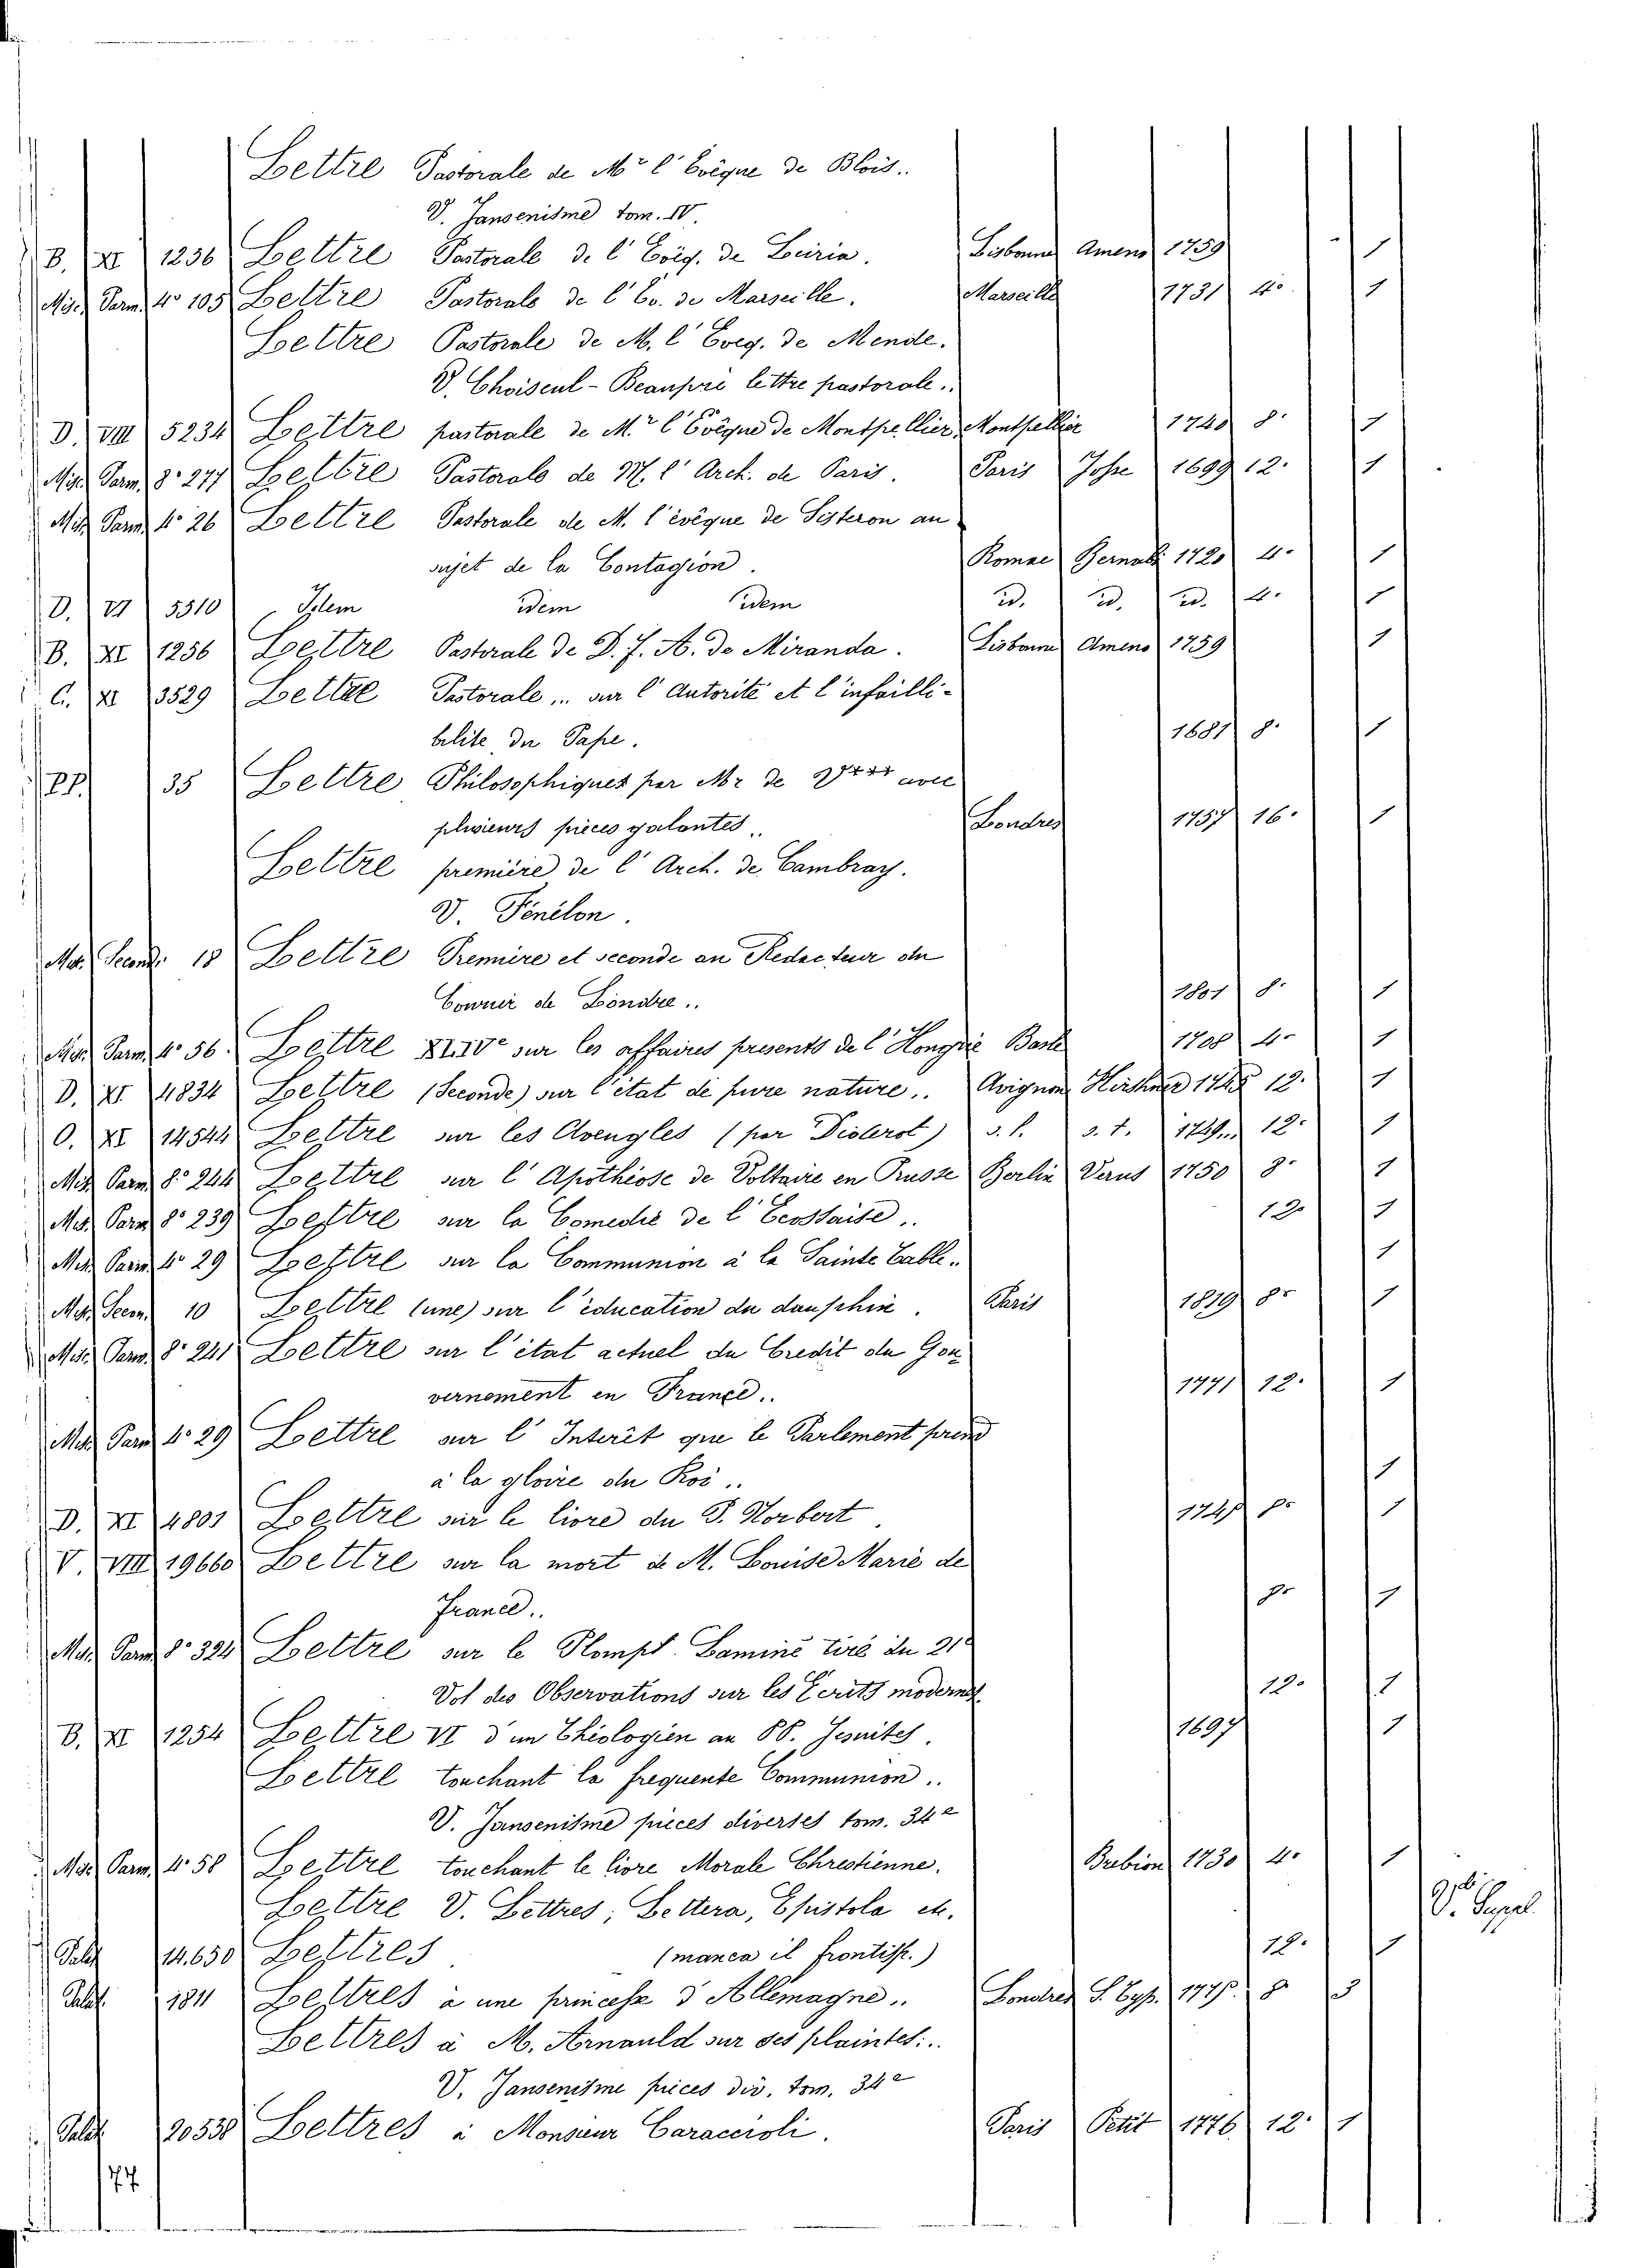 Lettre Pastorale de Mr l'Evêque de Blois..
V. Jansenisme tom. IV.
B. XI 1256 Lettre Pastorale de l'Evêq. de Leiria. Lisbonne Ameno 1759 1
Misc. Parm. 4° 105 Lettre Pastorale de l'Ev. de Marseille. Marseille 1731 4° 1
Lettre Pastorale de M. l'Eveq. de Mende.
V. Choiseul-Beaupré lettre pastorale..
D. VIII 5234 Lettre pastorale de M.r l'Evêque de Montpellier Montpellier 1740 8. 1
Misc. Parm. 8° 277 Lettre Pastorale de M. l'Arch. de Paris. Paris Josse 1699 12. 1
Misc. Parm. 4° 26 Lettre Pastorale de M. l'évêque de Sisteron au
sujet de la Contagion. Romae Bernabi 1720 4. 1
D. VI 5510 Idem idem idem id. id. id. 4. 1
B. XI 1256 Lettre Pastorale de D. J. A. de Miranda. Lisbonne Ameno 1759 1
C. XI 3529 Lettre Pastorale... sur l'Autorité et l'infailli-
bilite du Pape. 1681 8. 1
PP. 35 Lettre Philosophiques par Mr de V*** avec
plusieurs pièces galantes.. Londres 1757 16. 1
Lettre première de l'Arch. de Cambray.
V. Fénélon.
Misc. Second. 18 Lettre Première et seconde au Redacteur du
Courrier de Londre.. 1801 8. 1
Misc. Parm. 4° 56. Lettre XLIVe sur les affaires presents de l'Hongrie Basle 1708 4. 1
D. XI 4834 Lettre (Seconde) sur l'état de pure nature.. Avignon 12. 1
O. XI 14544 Lettre sur les Avengles (par Diderot) s. l. s. t. 1749.. 12. 1
Misc. Parm. 8° 244 Lettre sur l'Apothéose de Voltaire en Prusse Berlin 1750 8. 1
Misc. Parm. 8° 239 Lettre sur la Comedie de l'Ecossaise.. 12. 1
Misc. Parm. 4° 29 Lettre sur la Communion à la Sainte Table.. 1
Misc. Secon. 10 Lettre (une) sur l'éducation du dauphin. Paris 1819 8. 1
Misc. Parm. 8° 241 Lettre sur l'état actuel du Credit du Gou-
vernement en France.. 1771 12. 1
Misc. Parm. 4° 29 Lettre sur l'Interêt que le Parlement prend
à la gloire du Roi.. 1
D. XI 4801 Lettre sur le livre du P. Norbert. 1745 8. 1
V. VIII 19660 Lettre sur la mort de M. Louise Marie de
France.. 8. 1
Misc. Parm. 8° 324 Lettre sur le Plompt Laminé tiré du 21e
Vol des Observations sur les Ecrits modernes 12. 1
B. XI 1254 Lettre VI d'un Théologien au PP. Jesuites. 1697 1
Lettre touchant la frequente Communion..
V. Jansenisme pièces diverses tom. 34e
Misc. Parm. 4° 58 Lettre touchant le livre Morale Chrestienne. Brebion 1730 4. 1
Lettre V. Lettres, Lettera, Epistola etc.
Palat. 14.650 Lettres (manca il frontisp.) 12. 1
Palat. 1811 Lettres à une princesse d'Allemagne.. Londres S. Typ. 1775. 8. 3
Lettres à M. Arnauld sur ses plaintes...
V. Jansenisme pièces div. tom. 34e
Palat. 20538 Lettres à Monsieur Caraccioli. Paris Petit 1776 12. 1
V. Suppl.
77